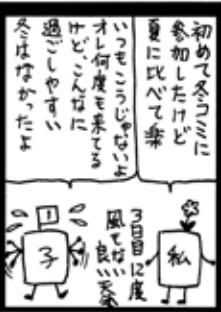 初めて冬コミに
参加したけど
夏に比べて楽
いつもこうじゃないよ
オレ何度も来てる
けど、こんなに
過ごしやすい
冬はなかったよ
3日目12度
風もない
良い天気
私
子